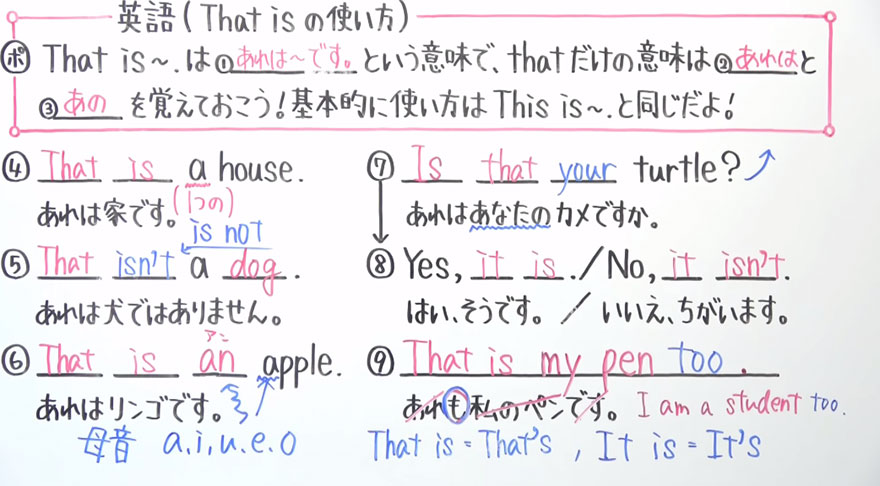 英語(That is の使い方)
ポ That is～.は①あれは～です。という意味で、thatだけの意味は②あれはと
③あの を覚えておこう!基本的に使い方はThis is～.と同じだよ!
④ That is a house.
あれは家です。(1つの)
is not
⑤ That isn't a dog.
あれは犬ではありません。
アン
⑥ That is an apple.
あれはリンゴです。
母音 a,i,u.e.o
⑦ Is that your turtle?
あれはあなたのカメですか。
⑧ Yes, it is./No, it isn't.
はい、そうです。/いいえ、ちがいます。
⑨ That is my pen too.
あれも私のペンです。 I am a student too.
That is = That's , It is = It's